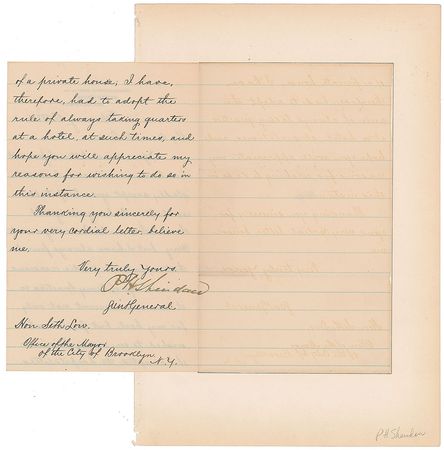 of a private house, I have,
therefore, had to adopt the
rule of always taking quarters
at a hotel, at such times, and
hope you will appreciate my
reasons for wishing to do so in
this instance.
Thanking you sincerely for
your very cordial letter, believe
me,
Very truly yours
P H Sheridan
Lieut General
Hon Seth Low.
Office of the Mayor
of the City of Brooklyn
N.Y.
P H Sheridan